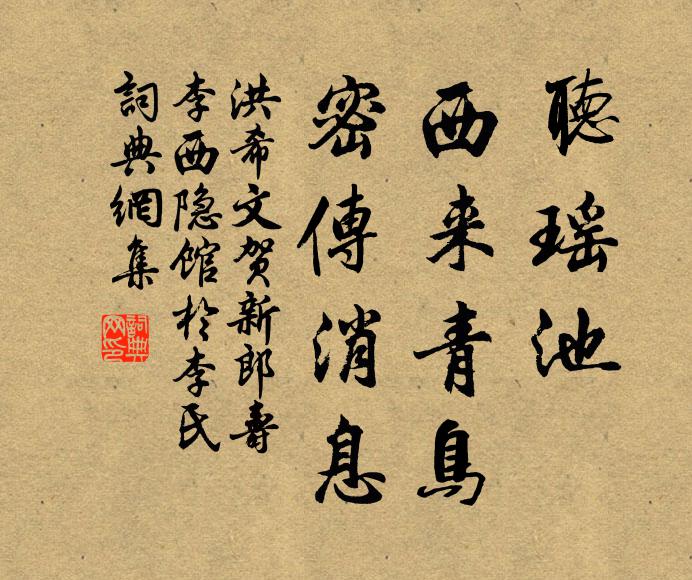 聽瑶池
西来青鳥
密傳消息
洪希文贺新郎壽
李西隐館於李氏
詞典網集
詞典
网印